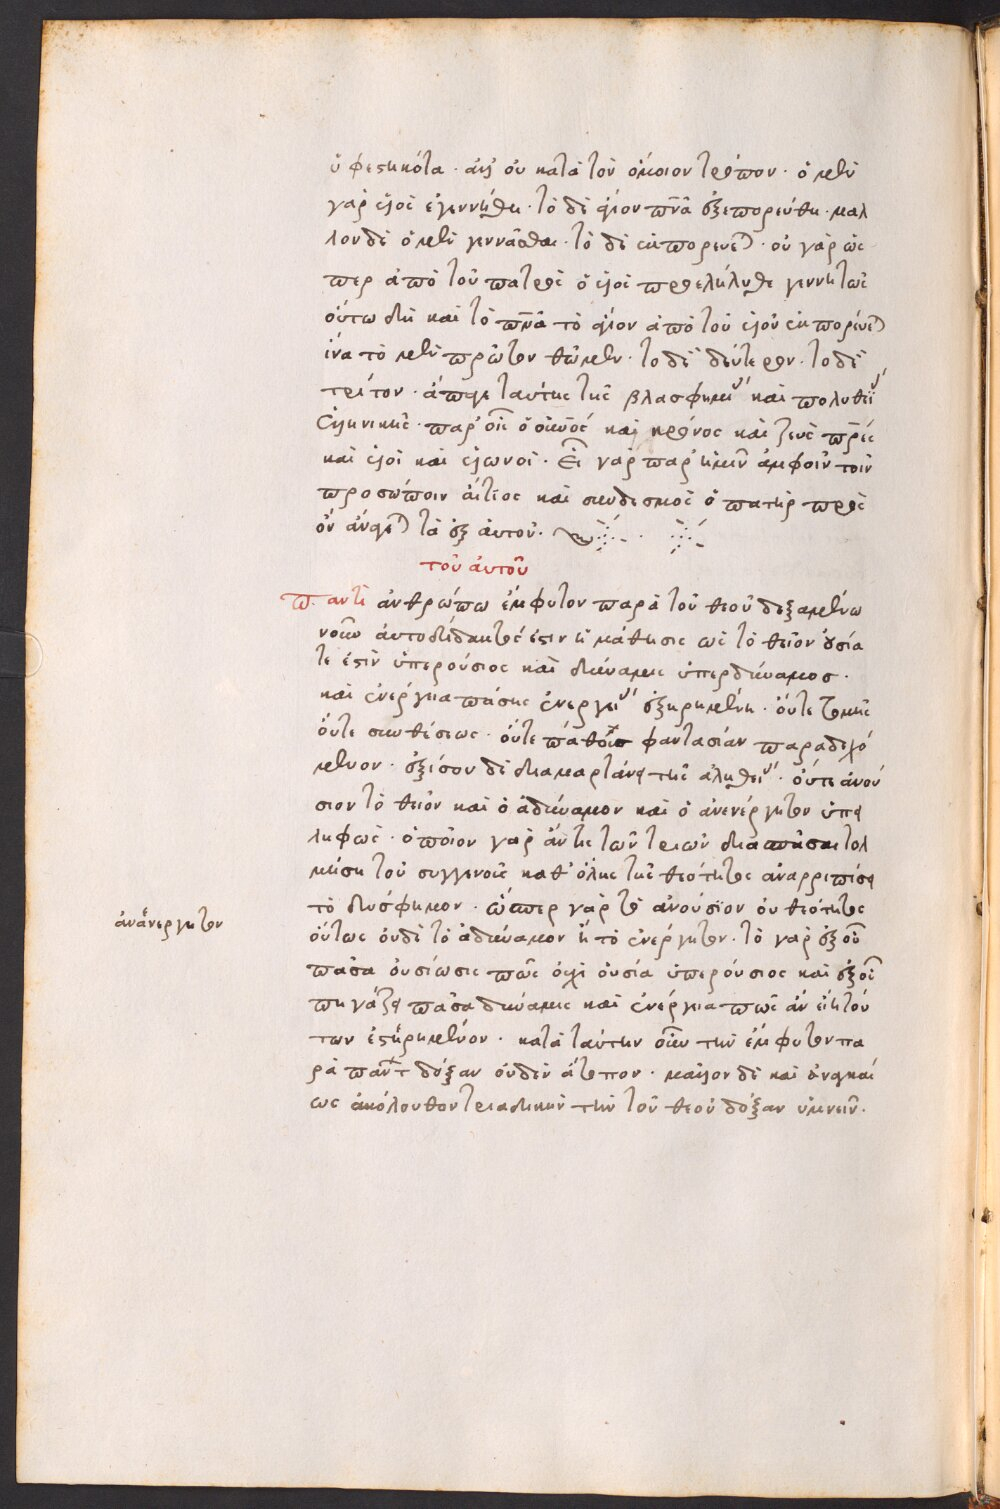 ὑφεστηκότα· ἀλλ' οὐ κατὰ τὸν ὅμοιον τρόπον· ὁ μὲν
γὰρ υἱὸς ἐγεννήθη· τὸ δὲ ἅγιον πνᾶ ἐξεπορεύθη· μᾶλ
λον δὲ ὁ μὲν γεννᾶσθαι· τὸ δὲ ἐκπορεύε)· οὐ γὰρ ὥς
περ ἀπὸ τοῦ πατρὸς ὁ υἱὸς προελήλυθε γεννητῶς
οὕτω δὴ καὶ τὸ πνᾶ τὸ ἅγιον ἀπὸ τοῦ υἱοῦ ἐκπορεύε)
ἵνα τὸ μὲν πρῶτον θῶμεν· τὸ δὲ δεύτερον· τὸ δὲ
τρίτον· ἄπαγε ταύτης τῆς βλασφημίας καὶ πολυθεΐας
ἑλληνικῆς· παρ' οἷς ὁ οὐνὸς καὶ κρόνος καὶ ζεὺς πρες
καὶ υἱοὶ καὶ υἱωνοί· εἷς γὰρ παρ' ἡμῖν ἀμφοῖν τοῖν
προσώποιν αἴτιος καὶ σύνδεσμος ὁ πατὴρ πρὸς
ὃν ἀνάγε) τὰ ἐξ αὐτοῦ·
τοῦ αὐτοῦ
Παντὶ ἀνθρώπω ἔμφυτον παρὰ τοῦ θεοῦ δεξαμένω
νοῦν αὐτοδίδακτός ἐστιν ἡ μάθησις ὡς τὸ θεῖον οὐσία
τέ ἐστιν ὑπερούσιος καὶ δύναμις ὑπερδύναμος·
καὶ ἐνέργεια πάσης ἐνεργείας ἐξηρημένη· οὔτε τομῆς
οὔτε συνθέσεως· οὔτε πάθους φαντασίαν παραδεχό
μενον· ἐξίσου δὲ διαμαρτάνει τῆς ἀληθείας· ὅ τε ἀνού
σιον τὸ θεῖον καὶ ὁ ἀδύναμον καὶ ὁ ἀνενέργητον ὑπει
ληφώς· ὁποῖον γὰρ ἄν τις τῶν τριῶν διαπτῦσαι τολ
μήση τοῦ συγγενοῦς καθ' ὅλης τῆς θεότητος ἀναρριπίσει
τὸ δύσφημον· ὥσπερ γὰρ τὸ ἀνούσιον οὐ θεότητος
οὕτως οὐδὲ τὸ ἀδύναμον ἢ τὸ ἐνέργητον· τὸ γὰρ ἐξ οὗ
ἀνἄνεργητον
πᾶσα οὐσίωσις πῶς οὐχὶ οὐσία ὑπερούσιος καὶ ἐξ οὗ
πηγάζει πᾶσα δύναμις καὶ ἐνέργεια πῶς ἂν εἴη τού
των ἐστηρημένον· κατὰ ταύτην οὖν τὴν ἔμφυτον πα
ρὰ παντ δόξαν οὐδὲν ἄτοπον· μᾶλλον δὲ καὶ ἀναγκαί
ως ἀκόλουθον τριαδικὴν τὴν τοῦ θεοῦ δόξαν ὑμνεῖν·